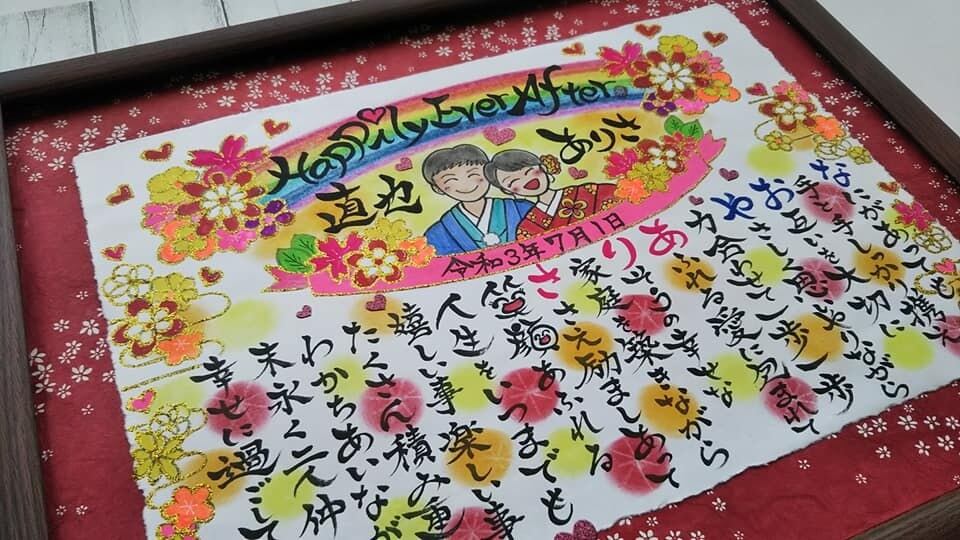 Happily Ever After
直也
ありさ
令和3年7月1日
なにがあっても
手と手しっかり携え
お互いを大切にしながら
やさしく思いやり
力合わせて一歩一歩
あふれる愛に包まれて
りそうの幸せな
家庭を築きながら
ささえ励ましあって
笑顔あふれる
人生をいつまでも
嬉しい事楽しい事
たくさん積み重
わかちあいなが
末永く二人仲
幸せに過ごして